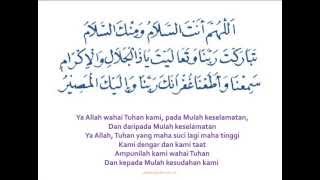 اَللّٰهُمَّ أَنْتَ السَّلَامُ وَمِنْكَ السَّلَامُ
تَبَارَكْتَ رَبَّنَا وَتَعَالَيْتَ يَاذَاالْجَلَالِ وَالْإِكْرَامِ
سَمِعْنَا وَأَطَعْنَا غُفْرَانَكَ رَبَّنَا وَإِلَيْكَ الْمَصِيْرُ
Ya Allah wahai Tuhan kami, pada Mulah keselamatan,
Dan daripada Mulah keselamatan
Ya Allah, Tuhan yang maha suci lagi maha tinggi
Kami dengar dan kami taat
Ampunilah kami wahai Tuhan
Dan kepada Mulah kesudahan kami